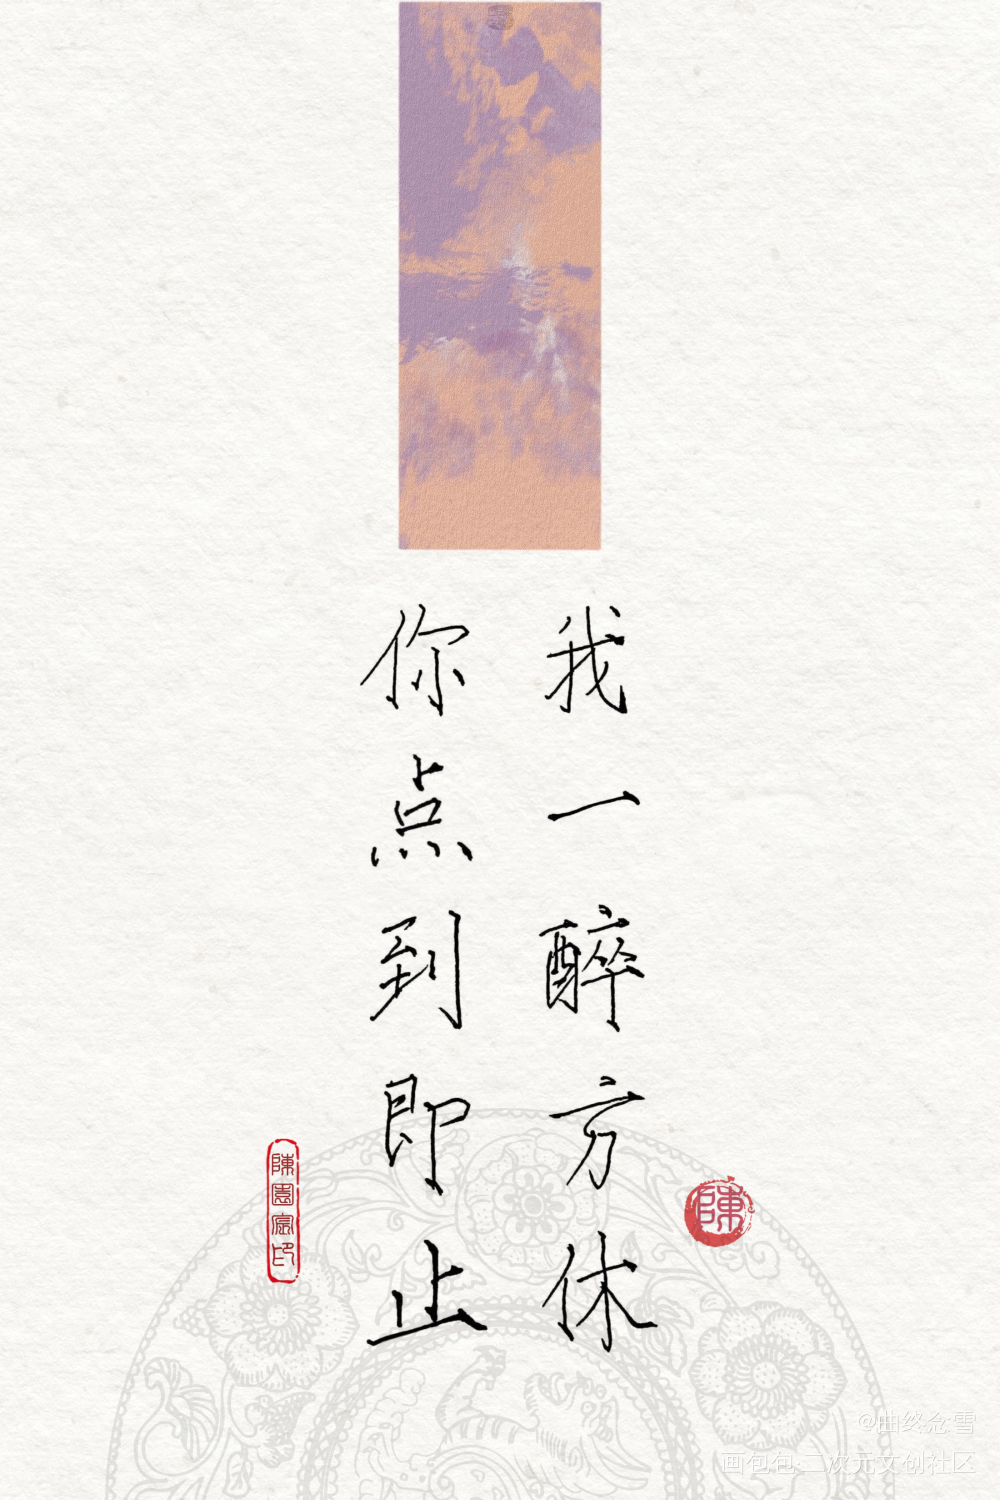 我一醉方休
你点到即止
陳
陳園宗印
@曲终念雪
画包包·二次元文创社区